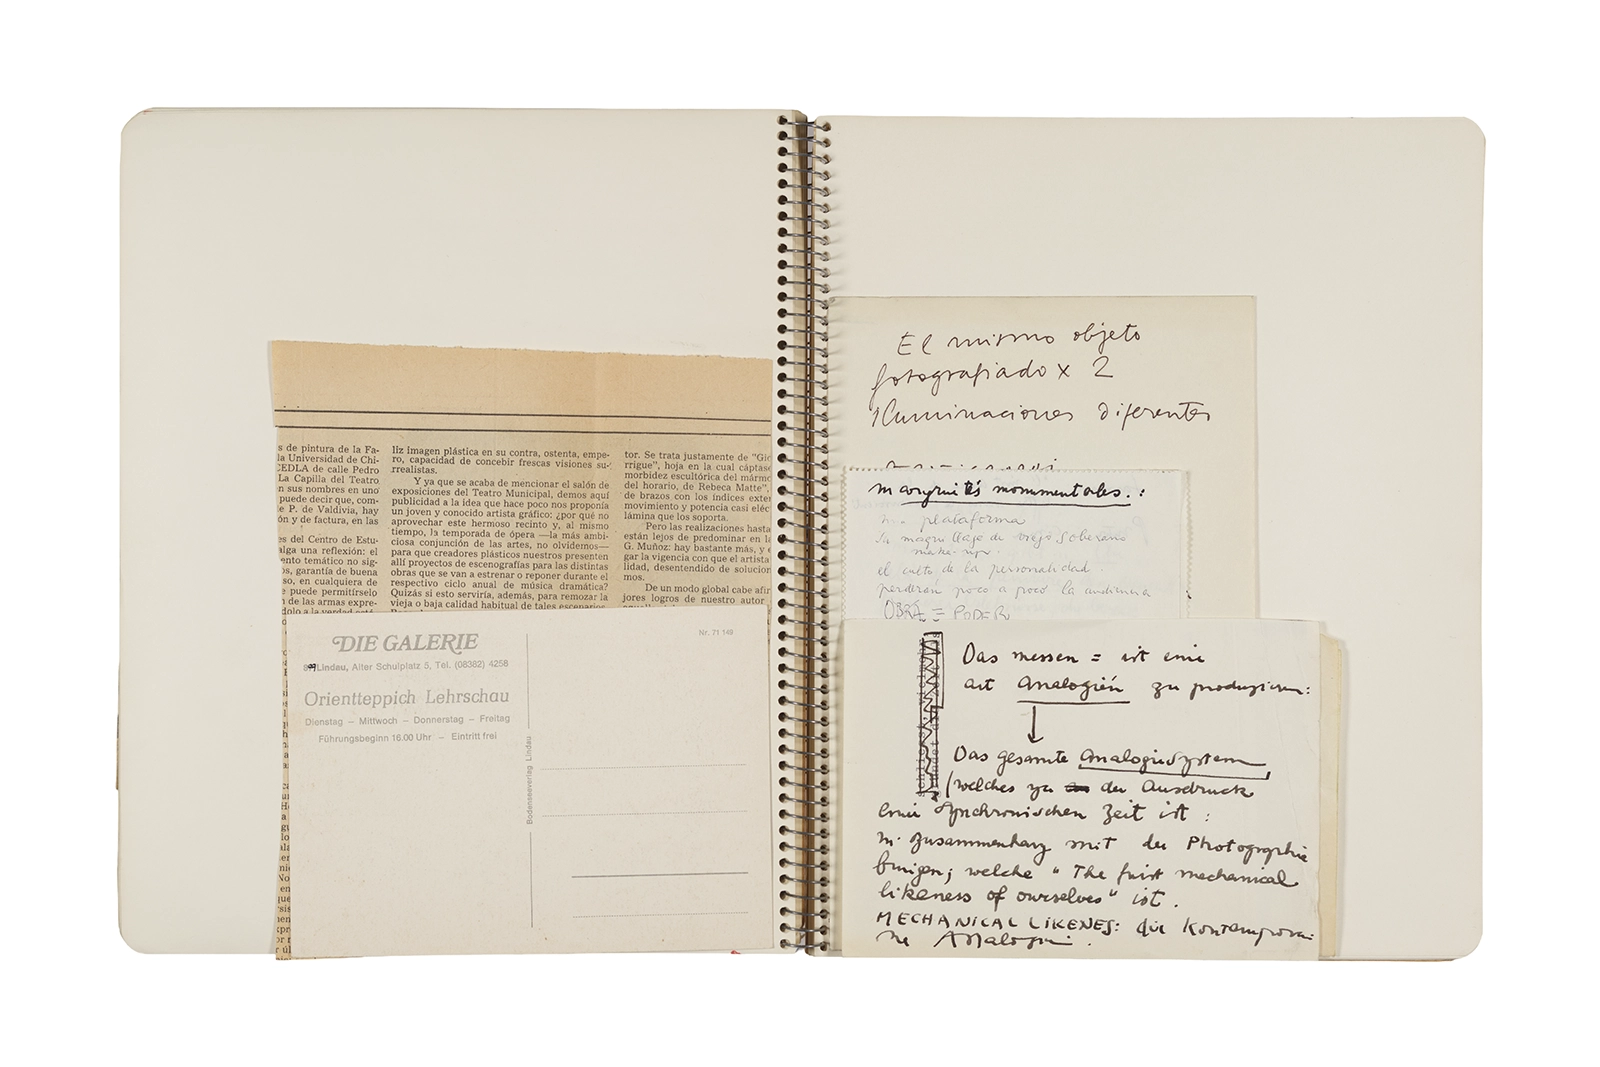 s de pintura de la Fa-
la Universidad de Chi-
CEDLA de calle Pedro
La Capilla del Teatro
n sus nombres en uno
puede decir que, com-
e P. de Valdivia, hay
ón y de factura, en las
es del Centro de Estu-
alga una reflexión: el
ento temático no sig-
s, garantía de buena
so, en cualquiera de
e puede permitírselo
n de las armas expre-
liz imagen plástica en su contra, ostenta, empe-
ro, capacidad de concebir frescas visiones su-
rrealistas.
Y ya que se acaba de mencionar el salón de
exposiciones del Teatro Municipal, demos aquí
publicidad a la idea que hace poco nos proponía
un joven y conocido artista gráfico: ¿por qué no
aprovechar este hermoso recinto y, al mismo
tiempo, la temporada de ópera —la más ambi-
ciosa conjunción de las artes, no olvidemos—
para que creadores plásticos nuestros presenten
allí proyectos de escenografías para las distintas
obras que se van a estrenar o reponer durante el
respectivo ciclo anual de música dramática?
Quizás si esto serviría, además, para remozar la
vieja o baja calidad habitual de tales escenarios
tor. Se trata justamente de "Gio
rrigue", hoja en la cual cáptase
morbidez escultórica del mármo
del horario, de Rebeca Matte",
de brazos con los índices exter
movimiento y potencia casi eléc
lámina que los soporta.
Pero las realizaciones hasta
están lejos de predominar en la
G. Muñoz: hay bastante más, y e
gar la vigencia con que el artista
lidad, desentendido de solucion
mos.
De un modo global cabe afir
jores logros de nuestro autor
DIE GALERIE
Lindau, Alter Schulplatz 5, Tel. (08382) 4258
Orientteppich Lehrschau
Dienstag – Mittwoch – Donnerstag – Freitag
Führungsbeginn 16.00 Uhr – Eintritt frei
Nr. 71 149
Bodenseeverlag Lindau
El mismo objeto
fotografiado x 2
iluminaciones diferentes
monumentales. :
plataforma
su maquillaje de viejo soberano
make-up.
el culto de la personalidad.
perderán poco a poco la audiencia
OBRA = PODER
Das messen = ist eine
art Analogien zu produzieren:
Das gesamte Analogiesystem
(welches zu der Ausdruck
einer synchronischen Zeit ist :
in zusammenhang mit der Photographie
bringen; welche "The first mechanical
likeness of ourselves" ist.
MECHANICAL LIKENES: die Kontempora-
ne Analogie.